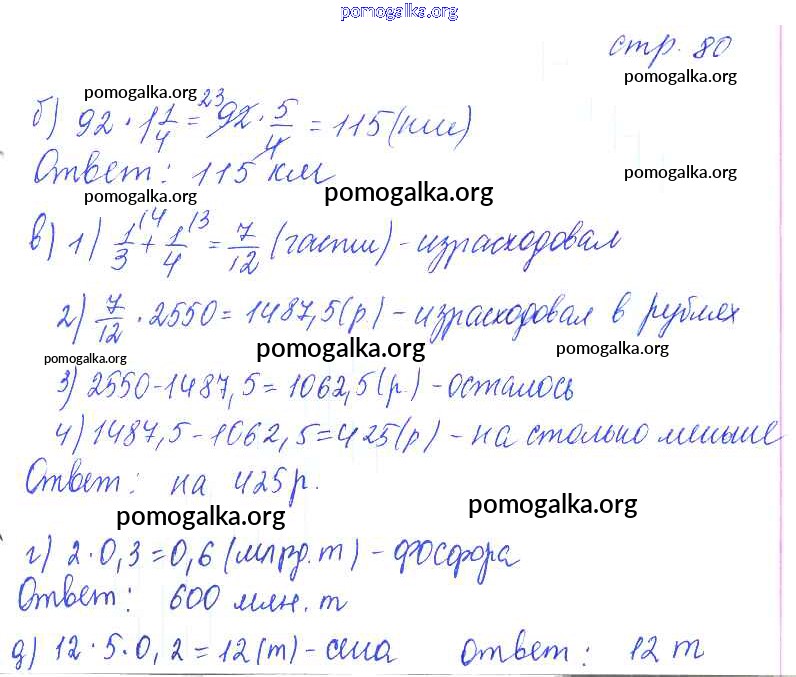 pomogalka.org
стр. 80
pomogalka.org
pomogalka.org
б) 92 · 1 1/4 = 92 23 · 5/4 = 115 (км)
Ответ: 115 км
pomogalka.org
pomogalka.org
pomogalka.org
в) 1) 1/3 \4 + 1/4 \3 = 7/12 (части) - израсходовал
2) 7/12 · 2550 = 1487,5 (р) - израсходовал в рублях
pomogalka.org
pomogalka.org
pomogalka.org
3) 2550 - 1487,5 = 1062,5 (р.) - осталось
4) 1487,5 - 1062,5 = 425 (р) - на столько меньше
Ответ: на 425 р.
pomogalka.org
pomogalka.org
г) 2 · 0,3 = 0,6 (млрд. т) - фосфора
Ответ: 600 млн. т
д) 12 · 5 · 0,2 = 12 (т) - сена Ответ: 12 т